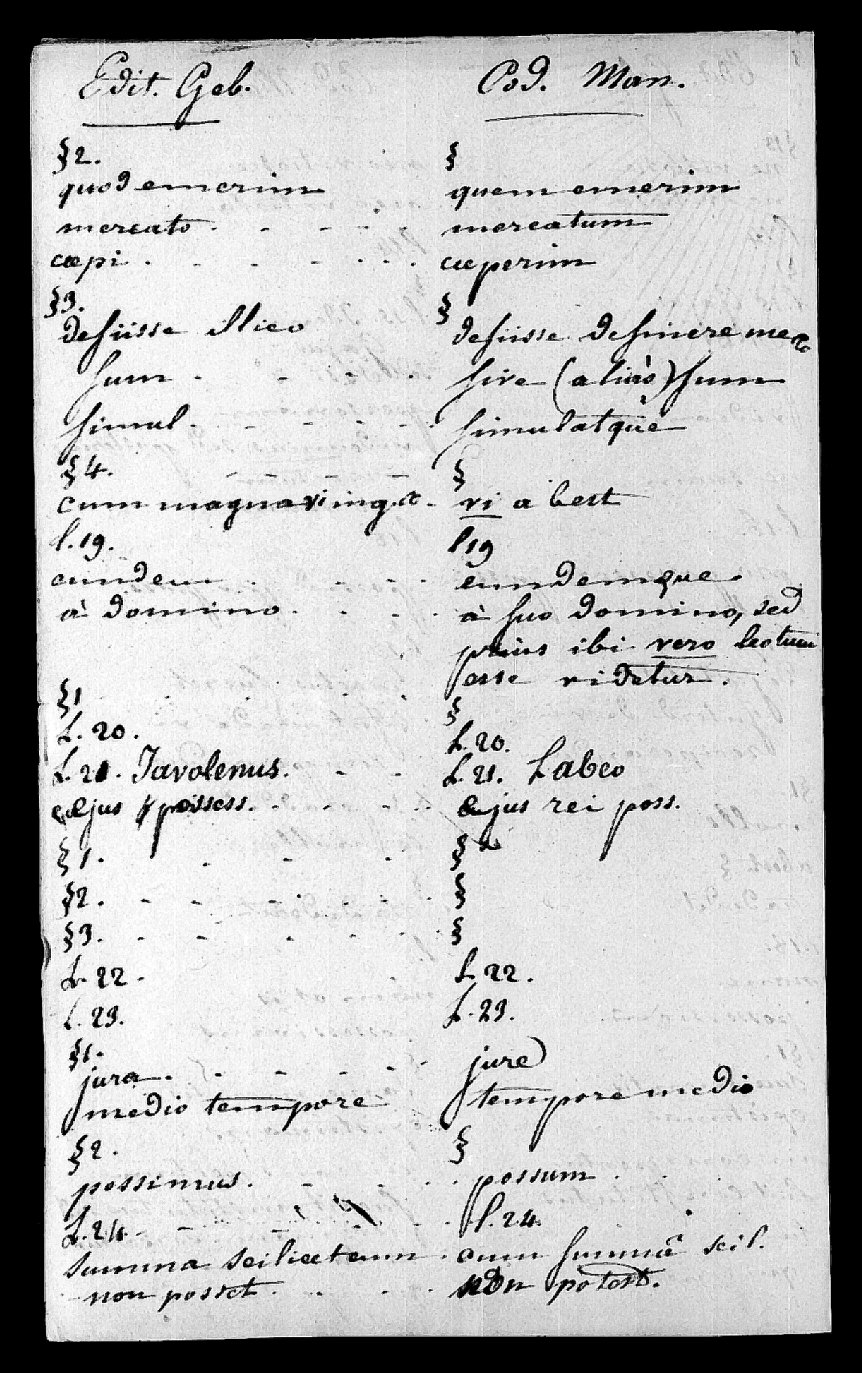 Edit. Geb. Cod. Man.
§2. §
quod emerim quem emerim
mercato . - - - mercatum
cœpi . - - - . . cœperim
§3. §
desiisse Ilico desiisse desinere
sum . - - . sive (alias) sum
simul . - - - - . simulatque
§4. §
cum magna vi ing. - vi abest
l. 19. l 19
eundem . - - . eundemque
à domino . - . . à suo domino, sed
prius ibi vero
esse videtur.
§1 §
L. 20. L. 20.
L. 21. Javolenus. - . L. 21. Labeo
ejus possess. - - - . ejus rei poss.
§1. . - . §
§2. - - . - . §
§3. . - . - . §
L. 22 . L. 22.
L. 23. L. 23.
§1.
jura . - . - - . jure
medio tempore tempore medio
§2. §
possimus . . - . . possum
L. 24 - - - . l. 24.
summa scilicet cum . cum summâ scil.
non posset . - . . . non potest.